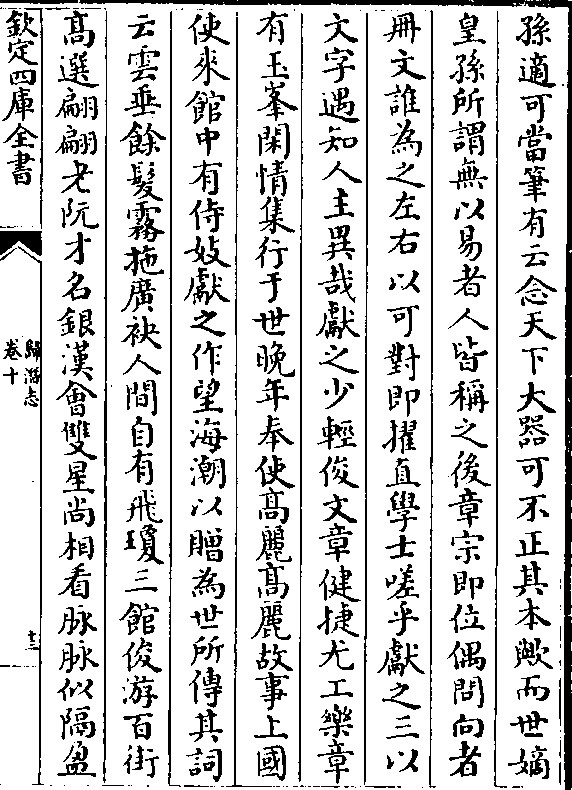 孫適可當筆有云念天下大器可不正其本歟而世嫡
皇孫所謂無以易者人皆稱之後章宗即位偶問向者
冊文誰為之左右以可對即擢直學士嗟乎獻之三以
文字遇知人主異哉獻之少輕俊文章健捷尤工樂章
有玉峯閑情集行于世晚年奉使高麗高麗故事上國
使來館中有侍妓獻之作望海潮以贈為世所傳其詞
云雲垂餘髮霧拖廣袂人間自有飛瓊三館俊游百街
高選翩翩老阮才名銀漢會雙星尚相看脉脉似隔盈
欽定四庫全書
歸潛志
卷十
十三